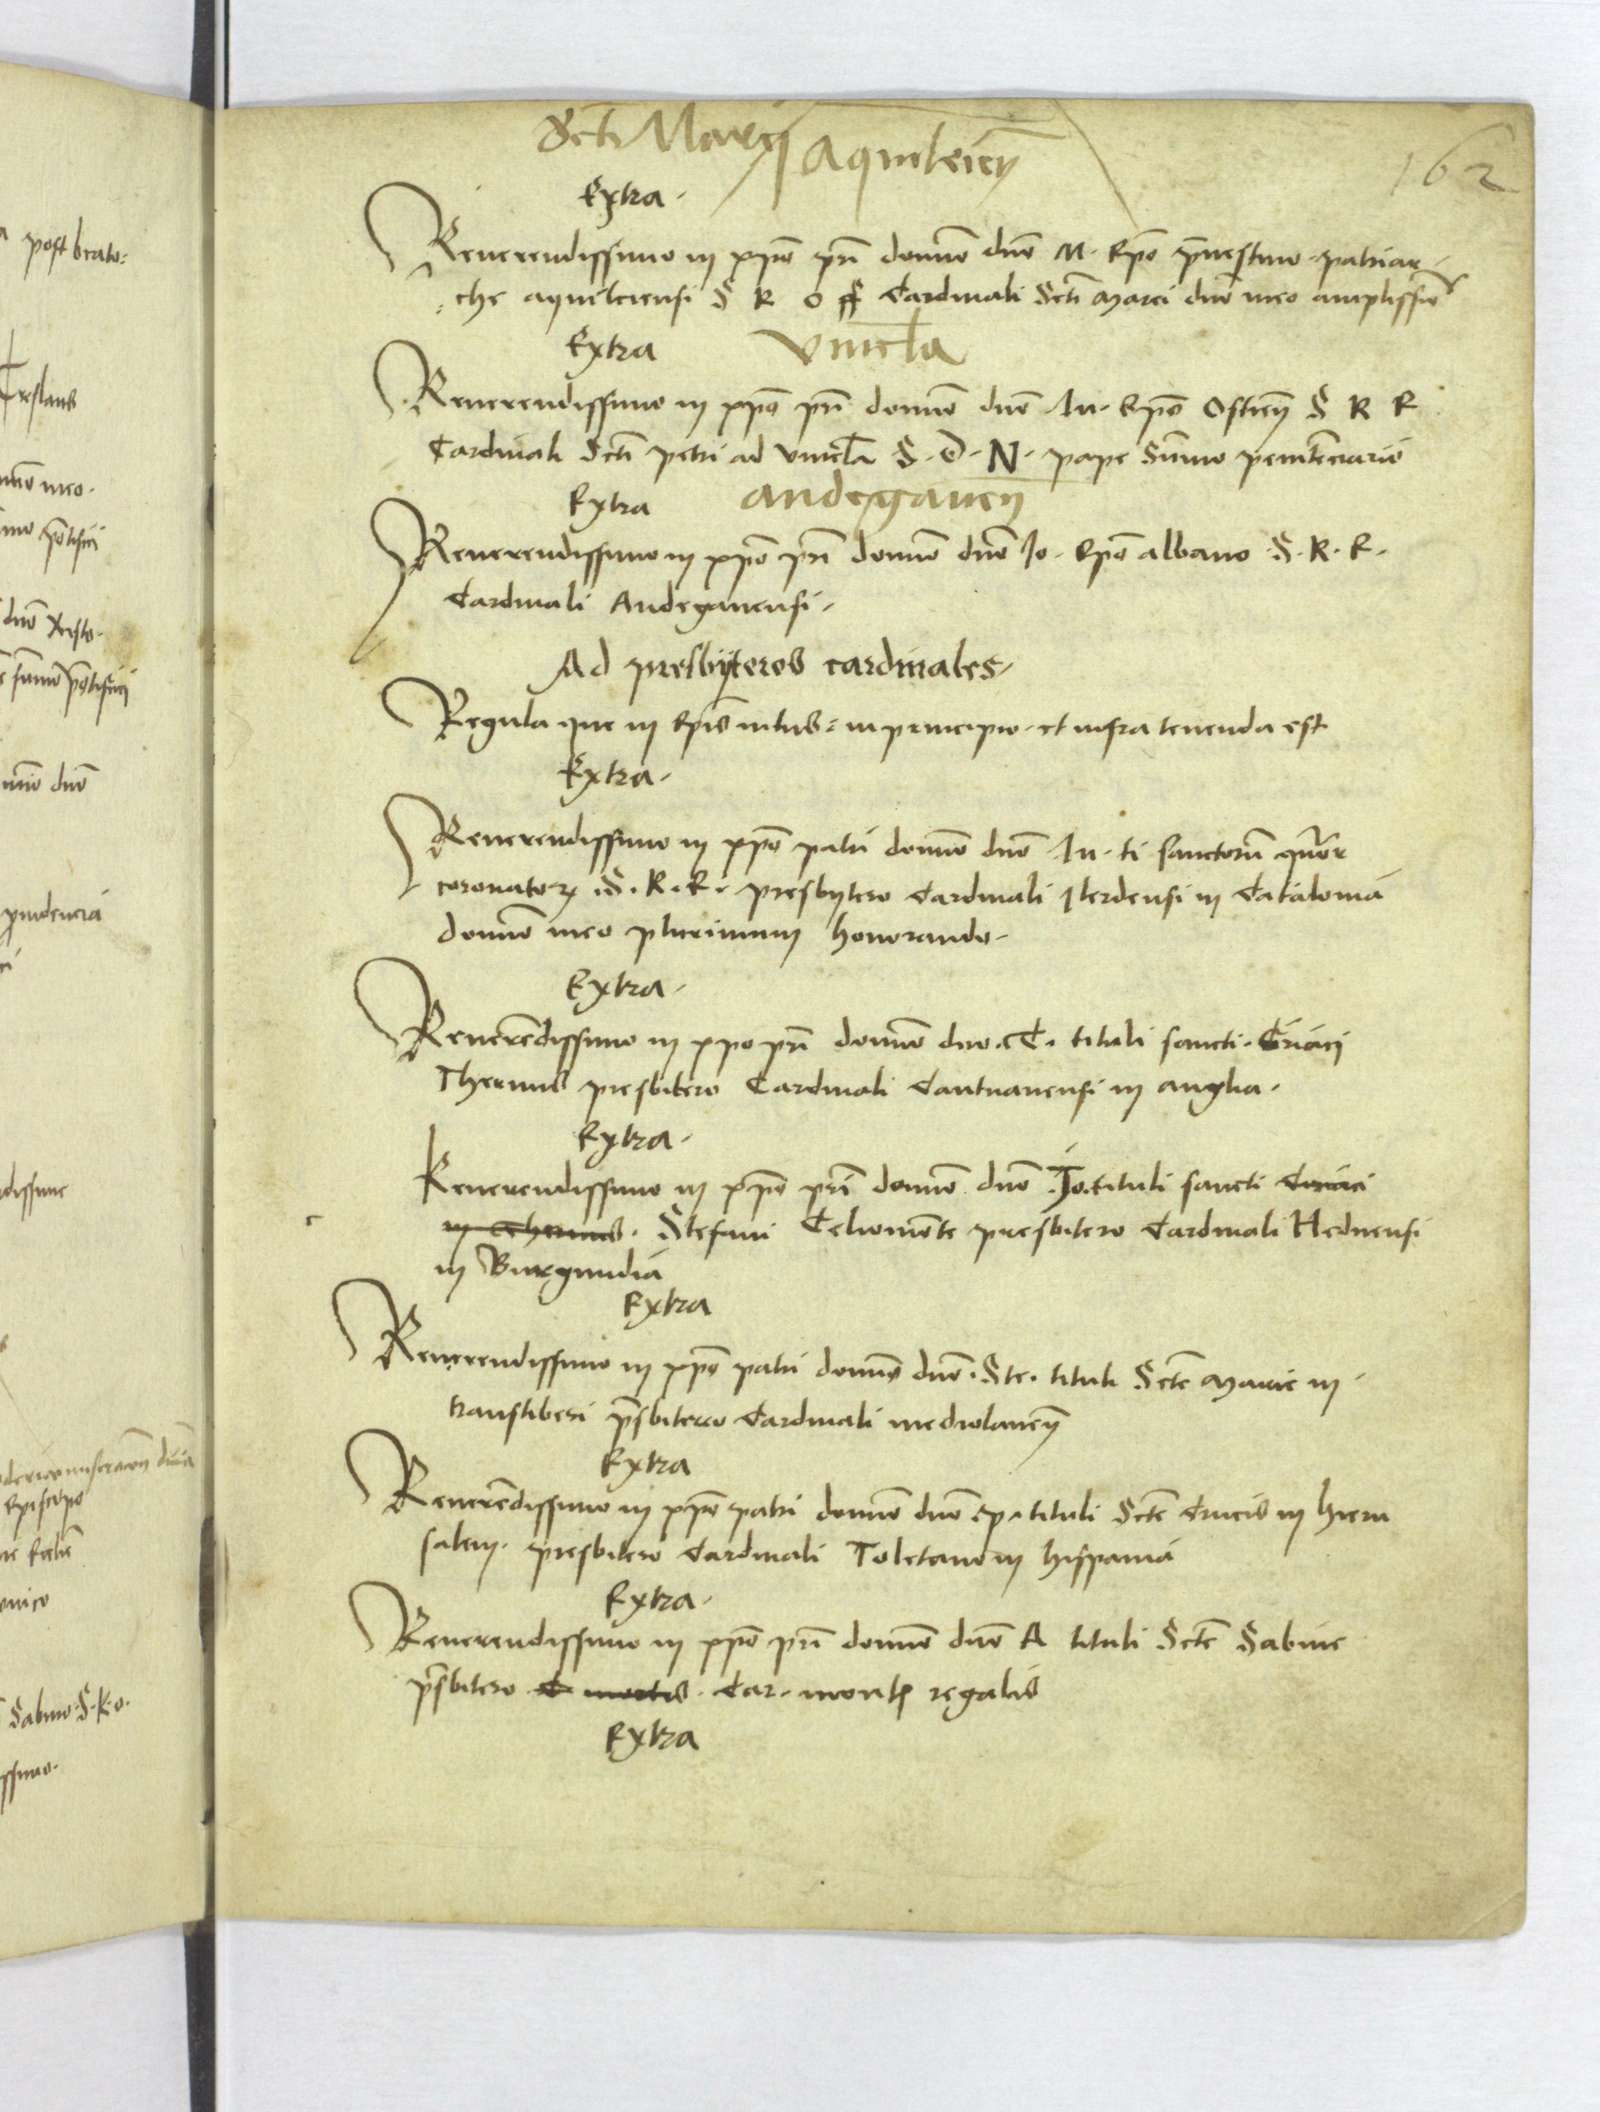 Scti Marci Aquileien
162
Extra.
Reuerendissimo in xpo pri domino dno M. Epo prnestino patriar-
che aquileiensi S R O Cardinali Scti Marci dno meo amplissio
Extra Vincla
Reuerendissimo in xpo pri domino dno Iu. Epo Ostien S R E
Cardinali Scti petri ad Vincla S. D. N. pape Summo penitenciario
Extra andegauen
Reuerendissimo in xpo pri domino dno Io. Epo albano S. R. E.
Cardinali Andegauensi.
Ad presbyteros cardinales.
Regula que in Epis intus: in principio et infra tenenda est
Extra.
Reuerendissimo in xpo patri domino dno Iu. ti sanctorum quor
coronator S. R. E. presbytero Cardinali Ilerdensi in Catalonia
domino meo plurimum honorando.
Extra.
Reuerendissimo in xpo pri domino dno. T. tituli sancti Ciriaci
Thermis presbitero Cardinali Cantuanensi in anglia.
Extra.
Reuerendissimo in xpo pri domino dno Jo. tituli sancti Ciriaci
in thermis. Stefani Celiomonte presbitero Cardinali Heduensi
in Burgundia
Extra
Reuerendissimo in xpo patri domino dno. Ste. tituli Scte Marie in
transtiberi prsbitero Cardinali mediolanen
Extra
Reuerendissimo in xpo patri domino dno. p. tituli Scte Crucis in hieru
salem. presbitero Cardinali Toletano in hispania
Extra.
Reuerendissimo in xpo pri domino dno A tituli Scte Sabine
prsbitero C montis. Car. montis regalis
Extra